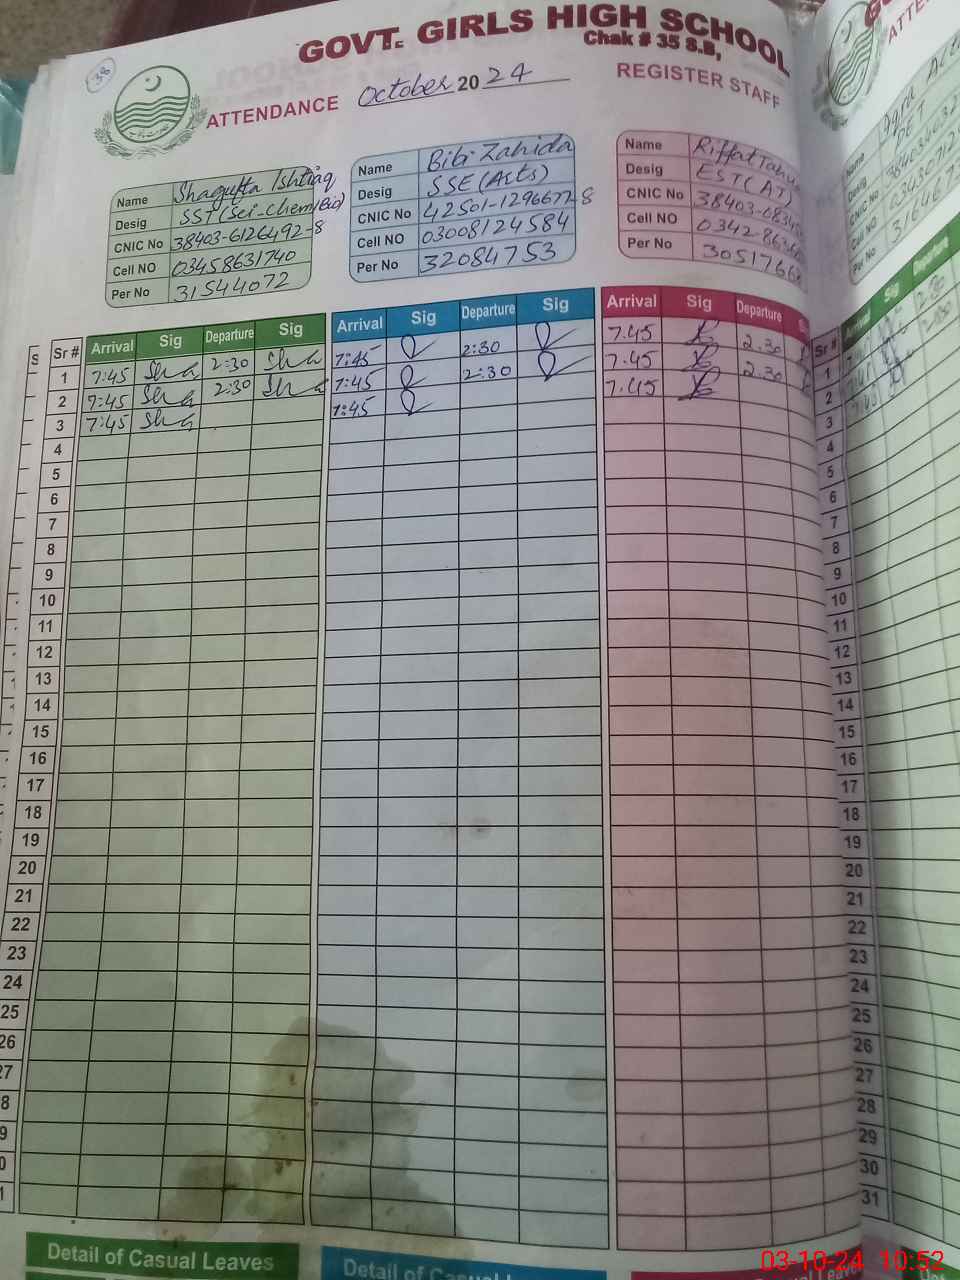 38
GOVT. GIRLS HIGH SCHOOL
Chak # 35 S.B,
ATTENDANCE October 2024 REGISTER STAFF
Name Shagufta Ishtiaq
Desig SST (Sci-Chem/Bio)
CNIC No 38403-6126492-8
Cell NO 03458631740
Per No 31544072
Name Bibi Zahida
Desig SSE (Arts)
CNIC No 42501-1296677-8
Cell NO 03008124584
Per No 32084753
Name Riffat
Desig EST (AT)
CNIC No 38403-
Cell NO 0342-
Per No 3051766
Name
Desig
CNIC No
Cell NO
Per No
Sr # Arrival Sig Departure Sig Arrival Sig Departure Sig Arrival Sig Departure Sr # Arrival Sig Departure
1 7:45 Sha 2:30 Sha 7:45 2:30 7.45 2.30 1
2 7:45 Sha 2:30 Sha 7:45 2:30 7.45 2.30 2
3 7:45 Sha 7:45 7.45 3
4 4
5 5
6 6
7 7
8 8
9 9
10 10
11 11
12 12
13 13
14 14
15 15
16 16
17 17
18 18
19 19
20 20
21 21
22 22
23 23
24 24
25 25
26 26
27 27
8 28
9 29
0 30
1 31
Detail of Casual Leaves
Detail of Casual
03-10-24 10:52